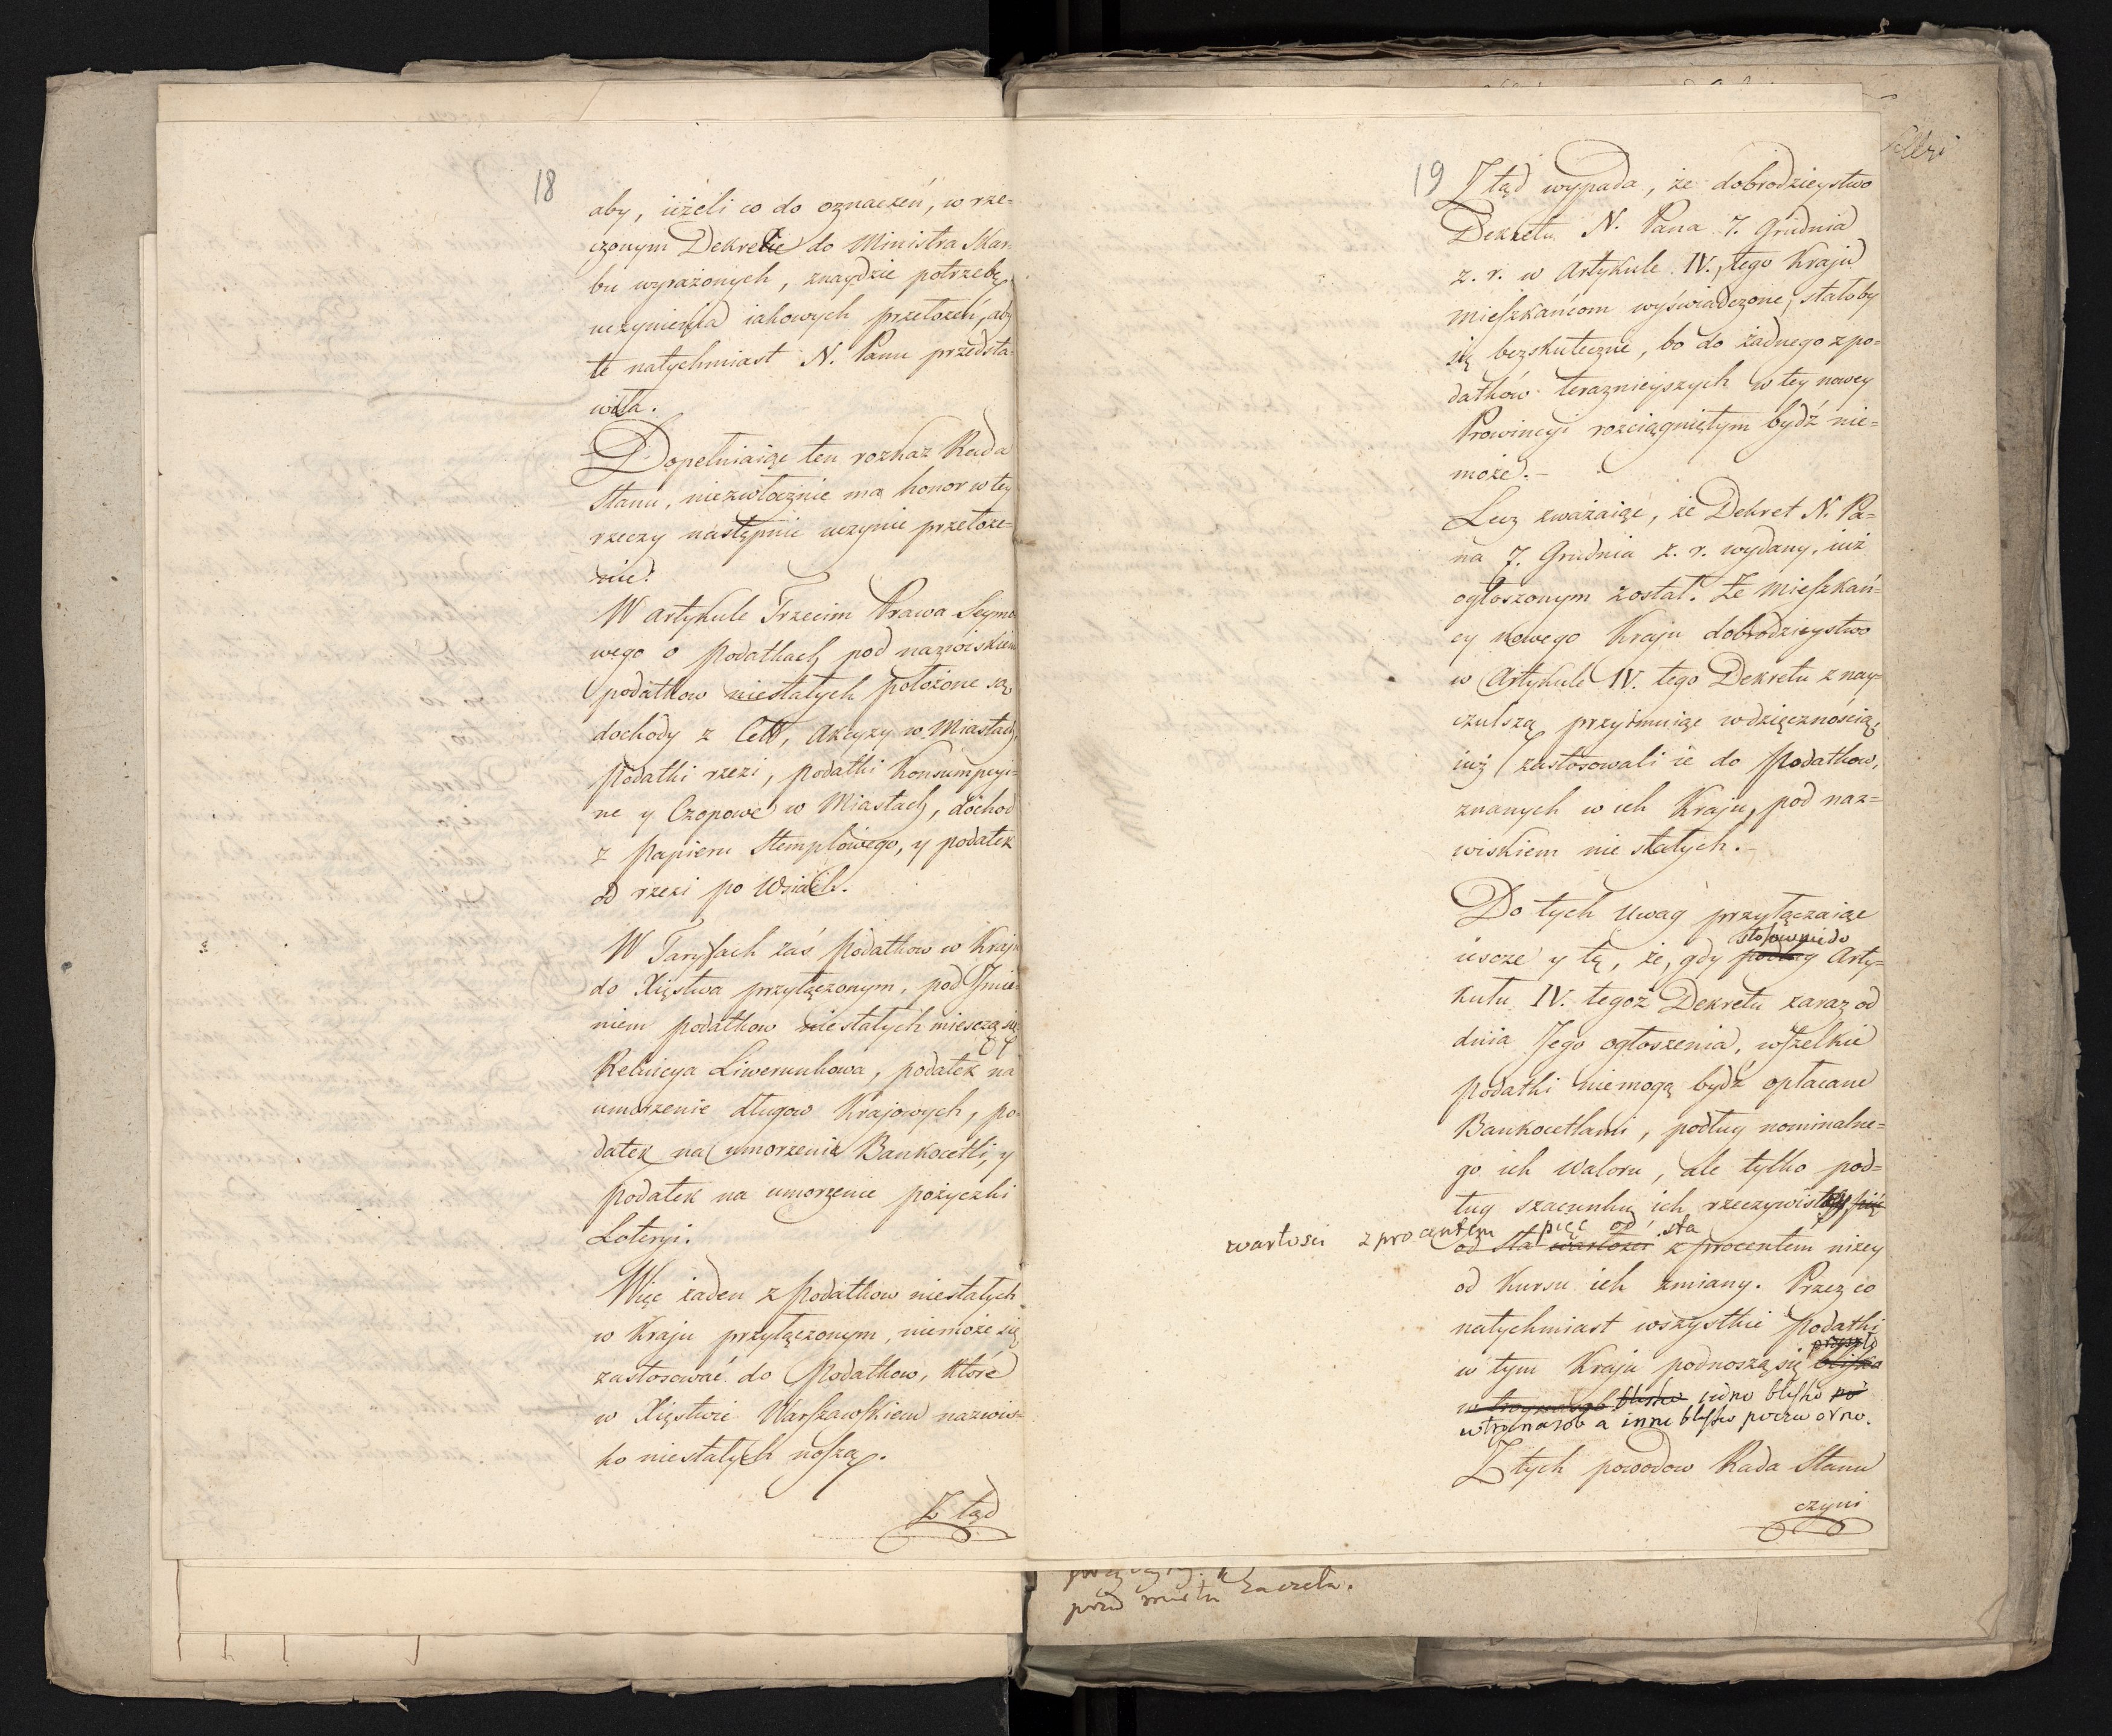 18
aby, ieżeli co do oznaczeń, w rze-
czonym Dekrecie do Ministra Skar-
bu wyrażonych, znaydzie potrzebę
uczynienia iakowych przełożeń, aby
te natychmiast N. Panu przedsta-
wiła.
Dopełniaiąc ten rozkaz Rada
Stanu, niezwłocznie ma honor w tey
rzeczy następnie uczynić przełoże-
nie:
W Artykule Trzecim Prawa Seymo
wego o Podatkach pod nazwiskiem
podatkow niestałych położone są
dochody z Cełł, Akcyzy w Miastach,
Podatki rzezi, podatki Konsumpcyi-
ne y Czopowe w Miastach, dochod
z Papieru Stemplowego, y podatek
od rzezi po Wsiach.
W Taryfach zaś Podatkow w Kraju
do Xięstwa przyłączonym, pod Jmie-
niem podatkow niestałych miesczą się
Reluicya Liwerunkowa, podatek na
umorzenie długow Krajowych, po-
datek na umorzenie Bankocetli, y
podatek na umorzenie pożyczki
Loteryi.
Więc żaden z Podatkow niestałych
w Kraju przyłączonym, niemoże się
zastosować do Podatkow, które
w Xięstwie Warszawskiem nazwis-
ko niestałych noszą.
Z tąd
19
Z tąd wypada, że dobrodzieystwo
Dekretu N. Pana 7. Grudnia
z. r. w Artykule IV., tego Kraju
Mieszkańcom wyświadczone, stałoby
się bezskuteczne, bo do żadnego z po-
datków teraznieyszych w tey nowey
Prowincyi rozciągniętym bydź nie-
może.-
Lecz zważaiąc, że Dekret N. Pa-
na 7. Grudnia z. r. wydany, iuż
ogłoszonym został. Że Mieszkań-
cy nowego Kraju dobrodzieystwo
w Artykule IV. tego Dekretu z nay-
czulszą przyimuiąc wdzięcznością,
iuż zastosowali ie do Podatkow,
znanych w ich Kraju, pod naz-
wiskiem nie stałych.-
Do tych Uwag przyłączaiąc
stosownie do
iescze y tę, że, gdy podług Arty-
kułu IV. tegoż Dekretu zaraz od
dnia Jego ogłoszenia, wszelkie
Podatki niemogą bydź opłacane
Bankocetlami, podług nominalne-
go ich Waloru, ale tylko pod-
ług szacunku ich rzeczywistey pięć
wartosci z procentem pięć od sta
od sta wartosci z procentem niżey
od Kursu ich zmiany. Przez co
natychmiast wszystkie Podatki
przeszło
w tym Kraju podnoszą się blisko
blisko iedno blisko
w troynasob a inne blisko poczwórno.
Z tych powodow Rada Stanu
czyni
przed